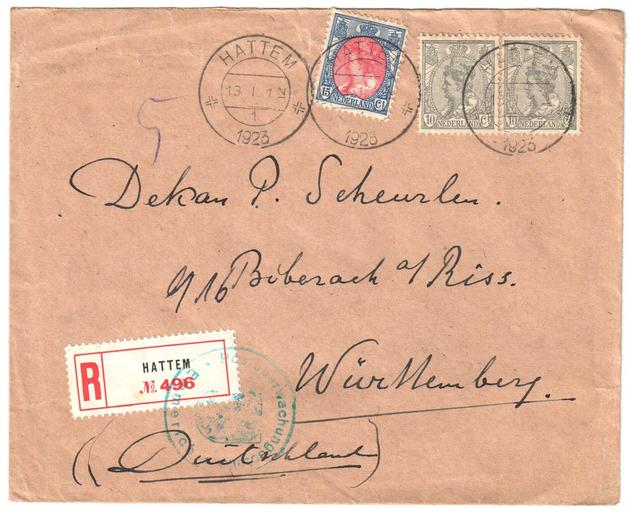 HATTEM
13.1.12
1
1923
1923
15 Ct
NEDERLAND
10 Ct
NEDERLAND
10
NEDERLAND
1923
5
Dekan P. Scheurlen.
Biberach a/Riss.
Württemberg.
(Duitschland)
R
HATTEM
№ 496
Emmerich
Postüberwachung